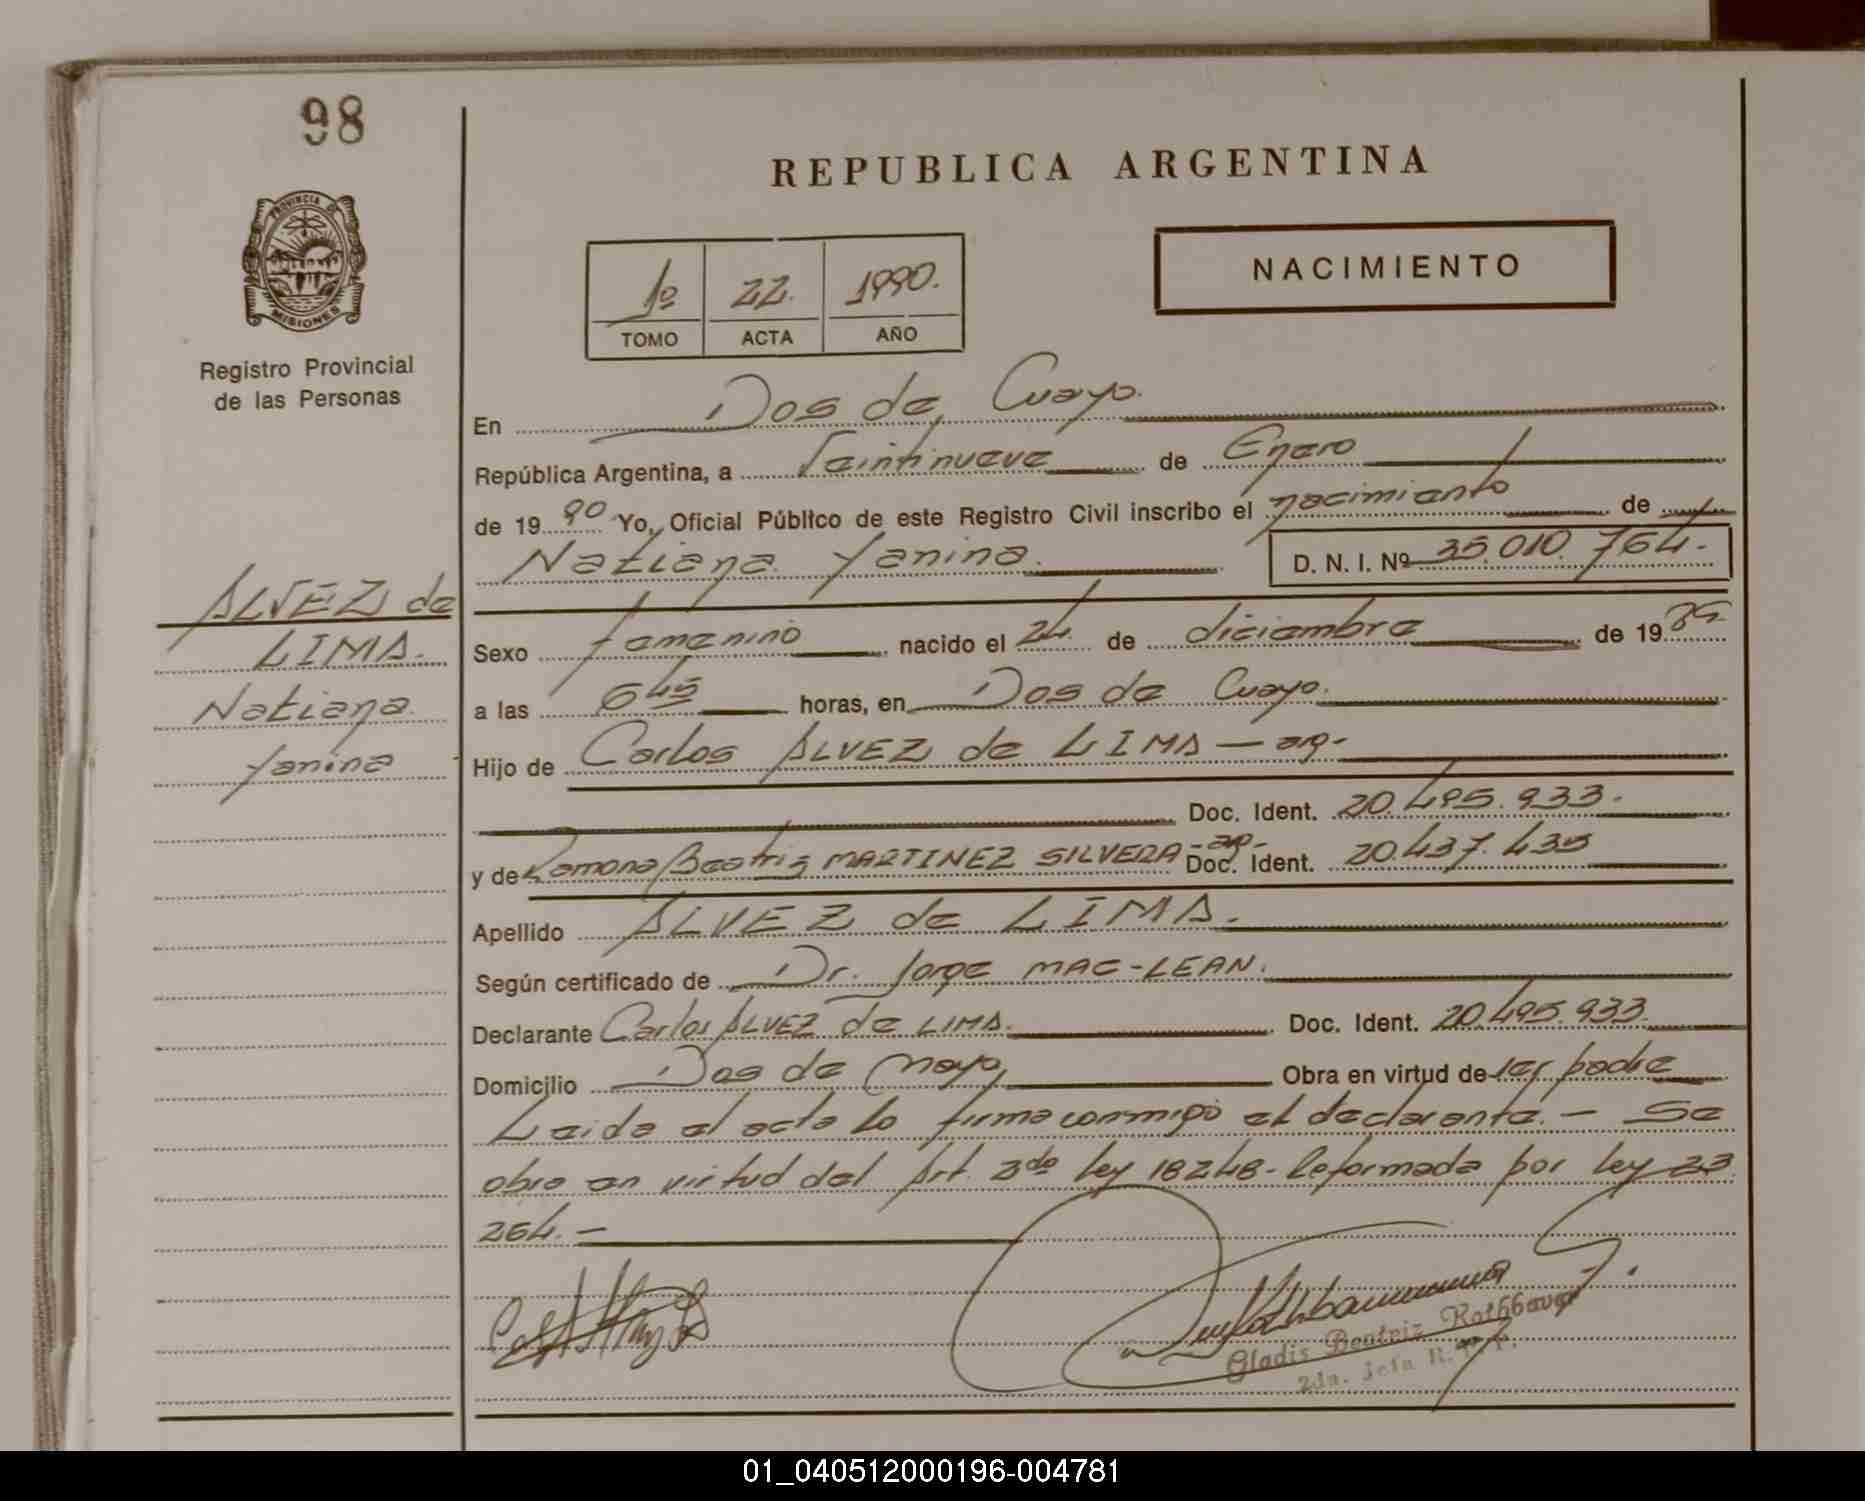 98
REPUBLICA ARGENTINA
PROVINCIA DE
MISIONES
Registro Provincial
de las Personas
1º 22. 1990.
TOMO ACTA AÑO
NACIMIENTO
En Dos de Mayo.
República Argentina, a Veintinueve de Enero
de 1990 Yo, Oficial Público de este Registro Civil inscribo el nacimiento de
Natiana Yanina. D. N. I. Nº 35.010.764.
ALVEZ de
LIMA.
Natiana
Yanina
Sexo femenino nacido el 24. de diciembre de 1989.
a las 6 45 horas, en Dos de Mayo.
Hijo de Carlos ALVEZ de LIMA - ar-
Doc. Ident. 20.495.933.
y de Ramona Beatriz MARTINEZ SILVERA - ar- Doc. Ident. 20.437.435
Apellido ALVEZ de LIMA.
Según certificado de Dr. Jorge MAC-LEAN.
Declarante Carlos ALVEZ de LIMA. Doc. Ident. 20.495.933
Domicilio Dos de Mayo Obra en virtud de ser padre
Leida el acta lo firma conmigo el declarante. - Se
obra en virtud del Art. 2do ley 18248- Reformada por ley 23
264.-
Gladis Beatriz Rothbauer
2da. Jefa R. P.
01_040512000196-004781